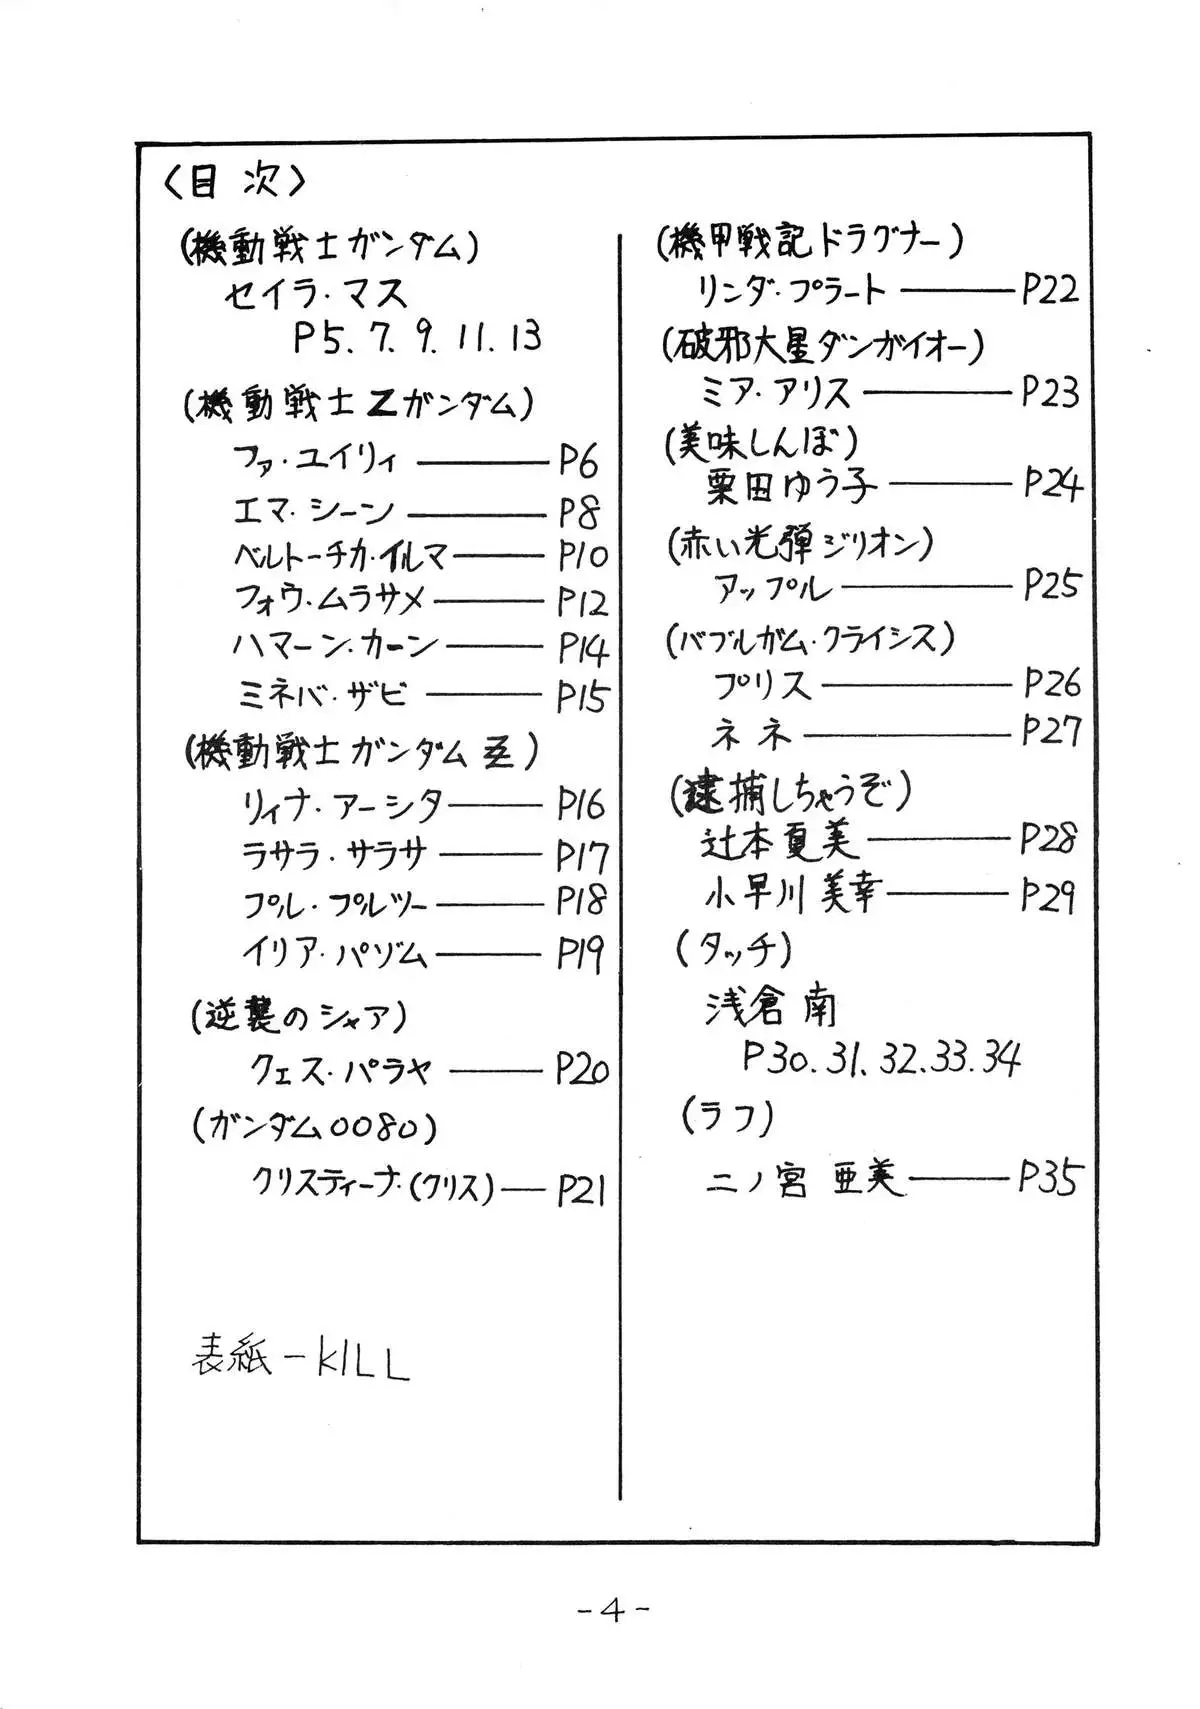 〈目次〉
(機動戦士ガンダム)
セイラ・マス
P5.7.9.11.13
(機動戦士Zガンダム)
ファ・ユイリィ ― P6
エマ・シーン ― P8
ベルトーチカ・イルマ ― P10
フォウ・ムラサメ ― P12
ハマーン・カーン ― P14
ミネバ・ザビ ― P15
(機動戦士ガンダムZZ)
リィナ・アーシタ ― P16
ラサラ・サラサ ― P17
プル・プルツー ― P18
イリア・パゾム ― P19
(逆襲のシャア)
クェス・パラヤ ― P20
(ガンダム0080)
クリスティーナ・(クリス) ― P21
表紙-KILL
(機甲戦記ドラグナー)
リンダ・プラート ― P22
(破邪大星ダンガイオー)
ミア・アリス ― P23
(美味しんぼ)
栗田ゆう子 ― P24
(赤い光弾ジリオン)
アップル ― P25
(バブルガム・クライシス)
プリス ― P26
ネネ ― P27
(逮捕しちゃうぞ)
辻本夏美 ― P28
小早川美幸 ― P29
(タッチ)
浅倉南
P30.31.32.33.34
(ラフ)
二ノ宮亜美 ― P35
-4-